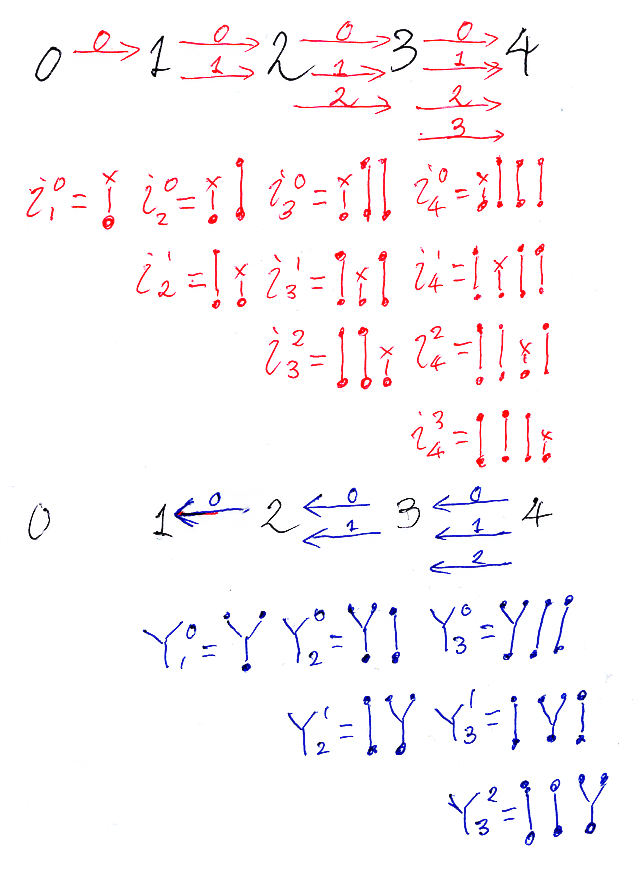 0 0 1 0 2 0 3 0 4
1 1 1
2 2
3
i₁⁰= i₂⁰= i₃⁰= i₄⁰=
i₂¹= i₃¹= i₄¹=
i₃²= i₄²=
i₄³=
0 1 0 2 0 3 0 4
1 1
2
Y₁⁰= Y₂⁰= Y₃⁰=
Y₂¹= Y₃¹=
Y₃²=